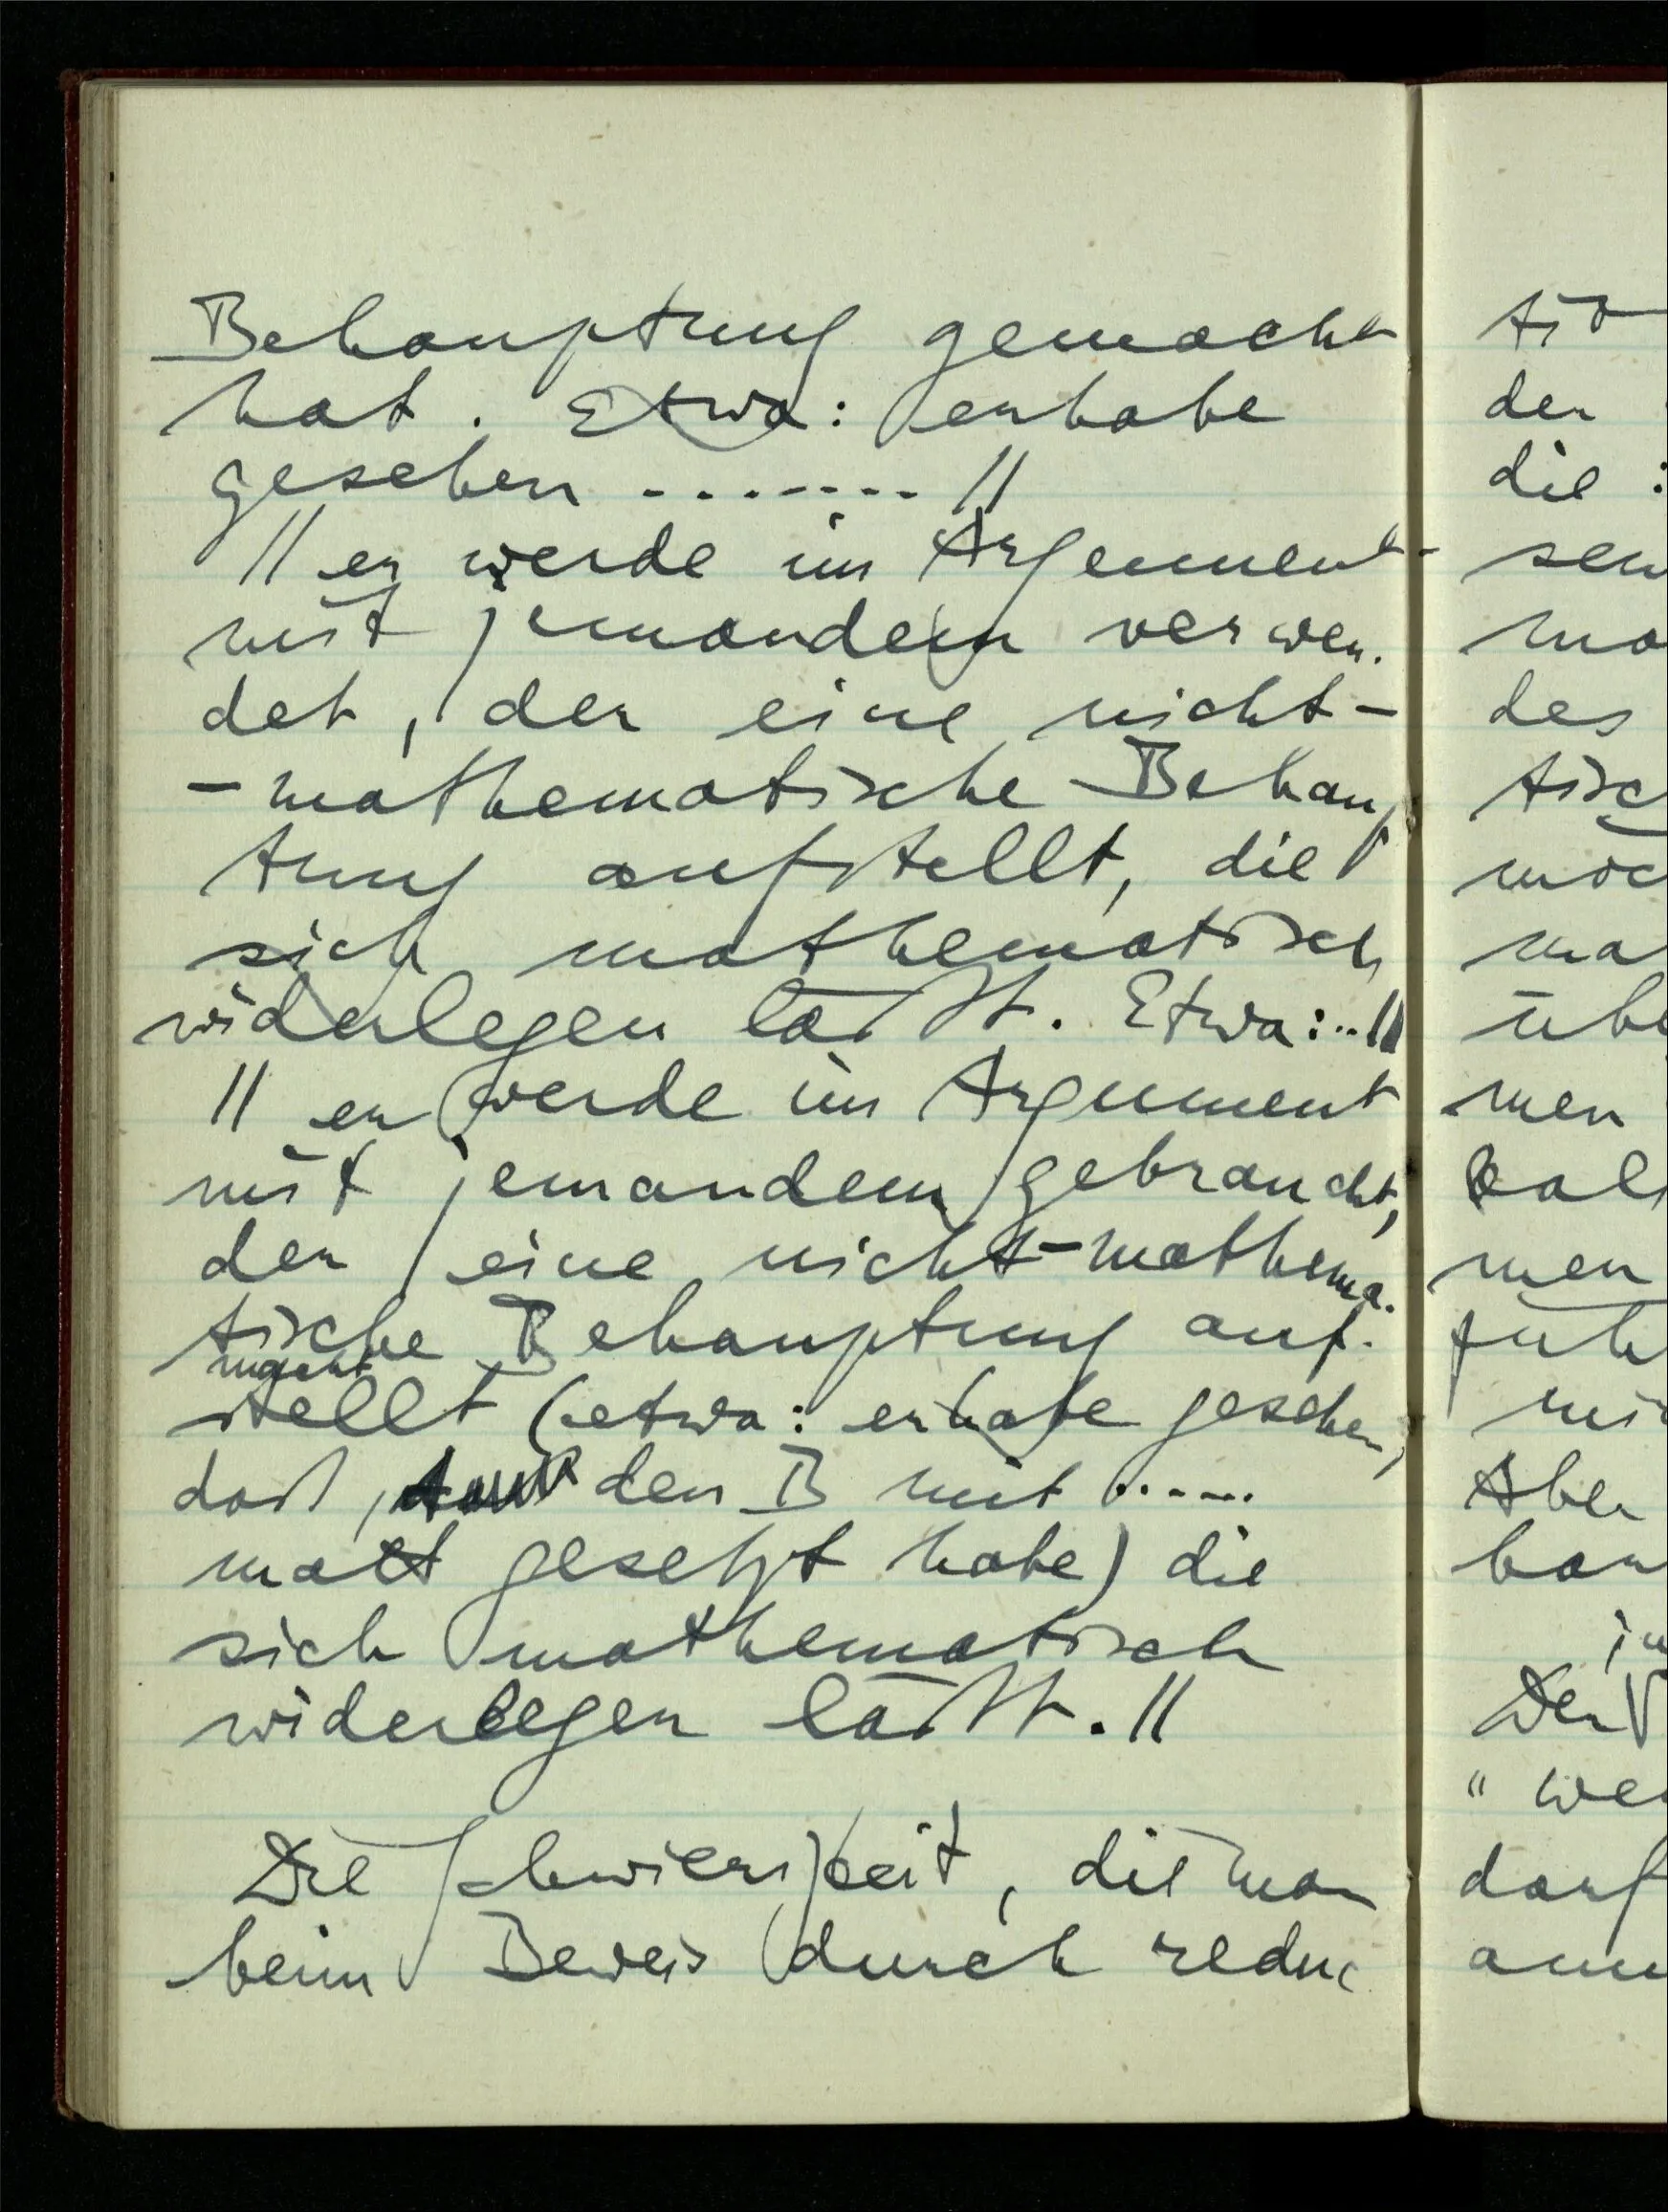 Behauptung gemacht
hat. Etwa: er habe
gesehen ........ //
// er werde im Argument
mit jemandem verwen-
det, der eine nicht-
-mathematische Behaup
tung aufstellt, die
sich mathematisch
widerlegen läßt. Etwa:..//
// er werde im Argument
mit jemandem gebraucht,
der eine nicht-mathema-
tische Behauptung auf-
macht
stellt (etwa: er habe gesehen,
daß, den B mit .....
matt gesetzt habe) die
sich mathematisch
widerlegen läßt. //
Die Schwierigkeit, die man
beim Beweis durch reduc
tio
der
die :
sem
ma
des
tisc
möc
ma
übe
men
kal
men
füh
mi
Aber
han
in
Der
" we
darf
ann